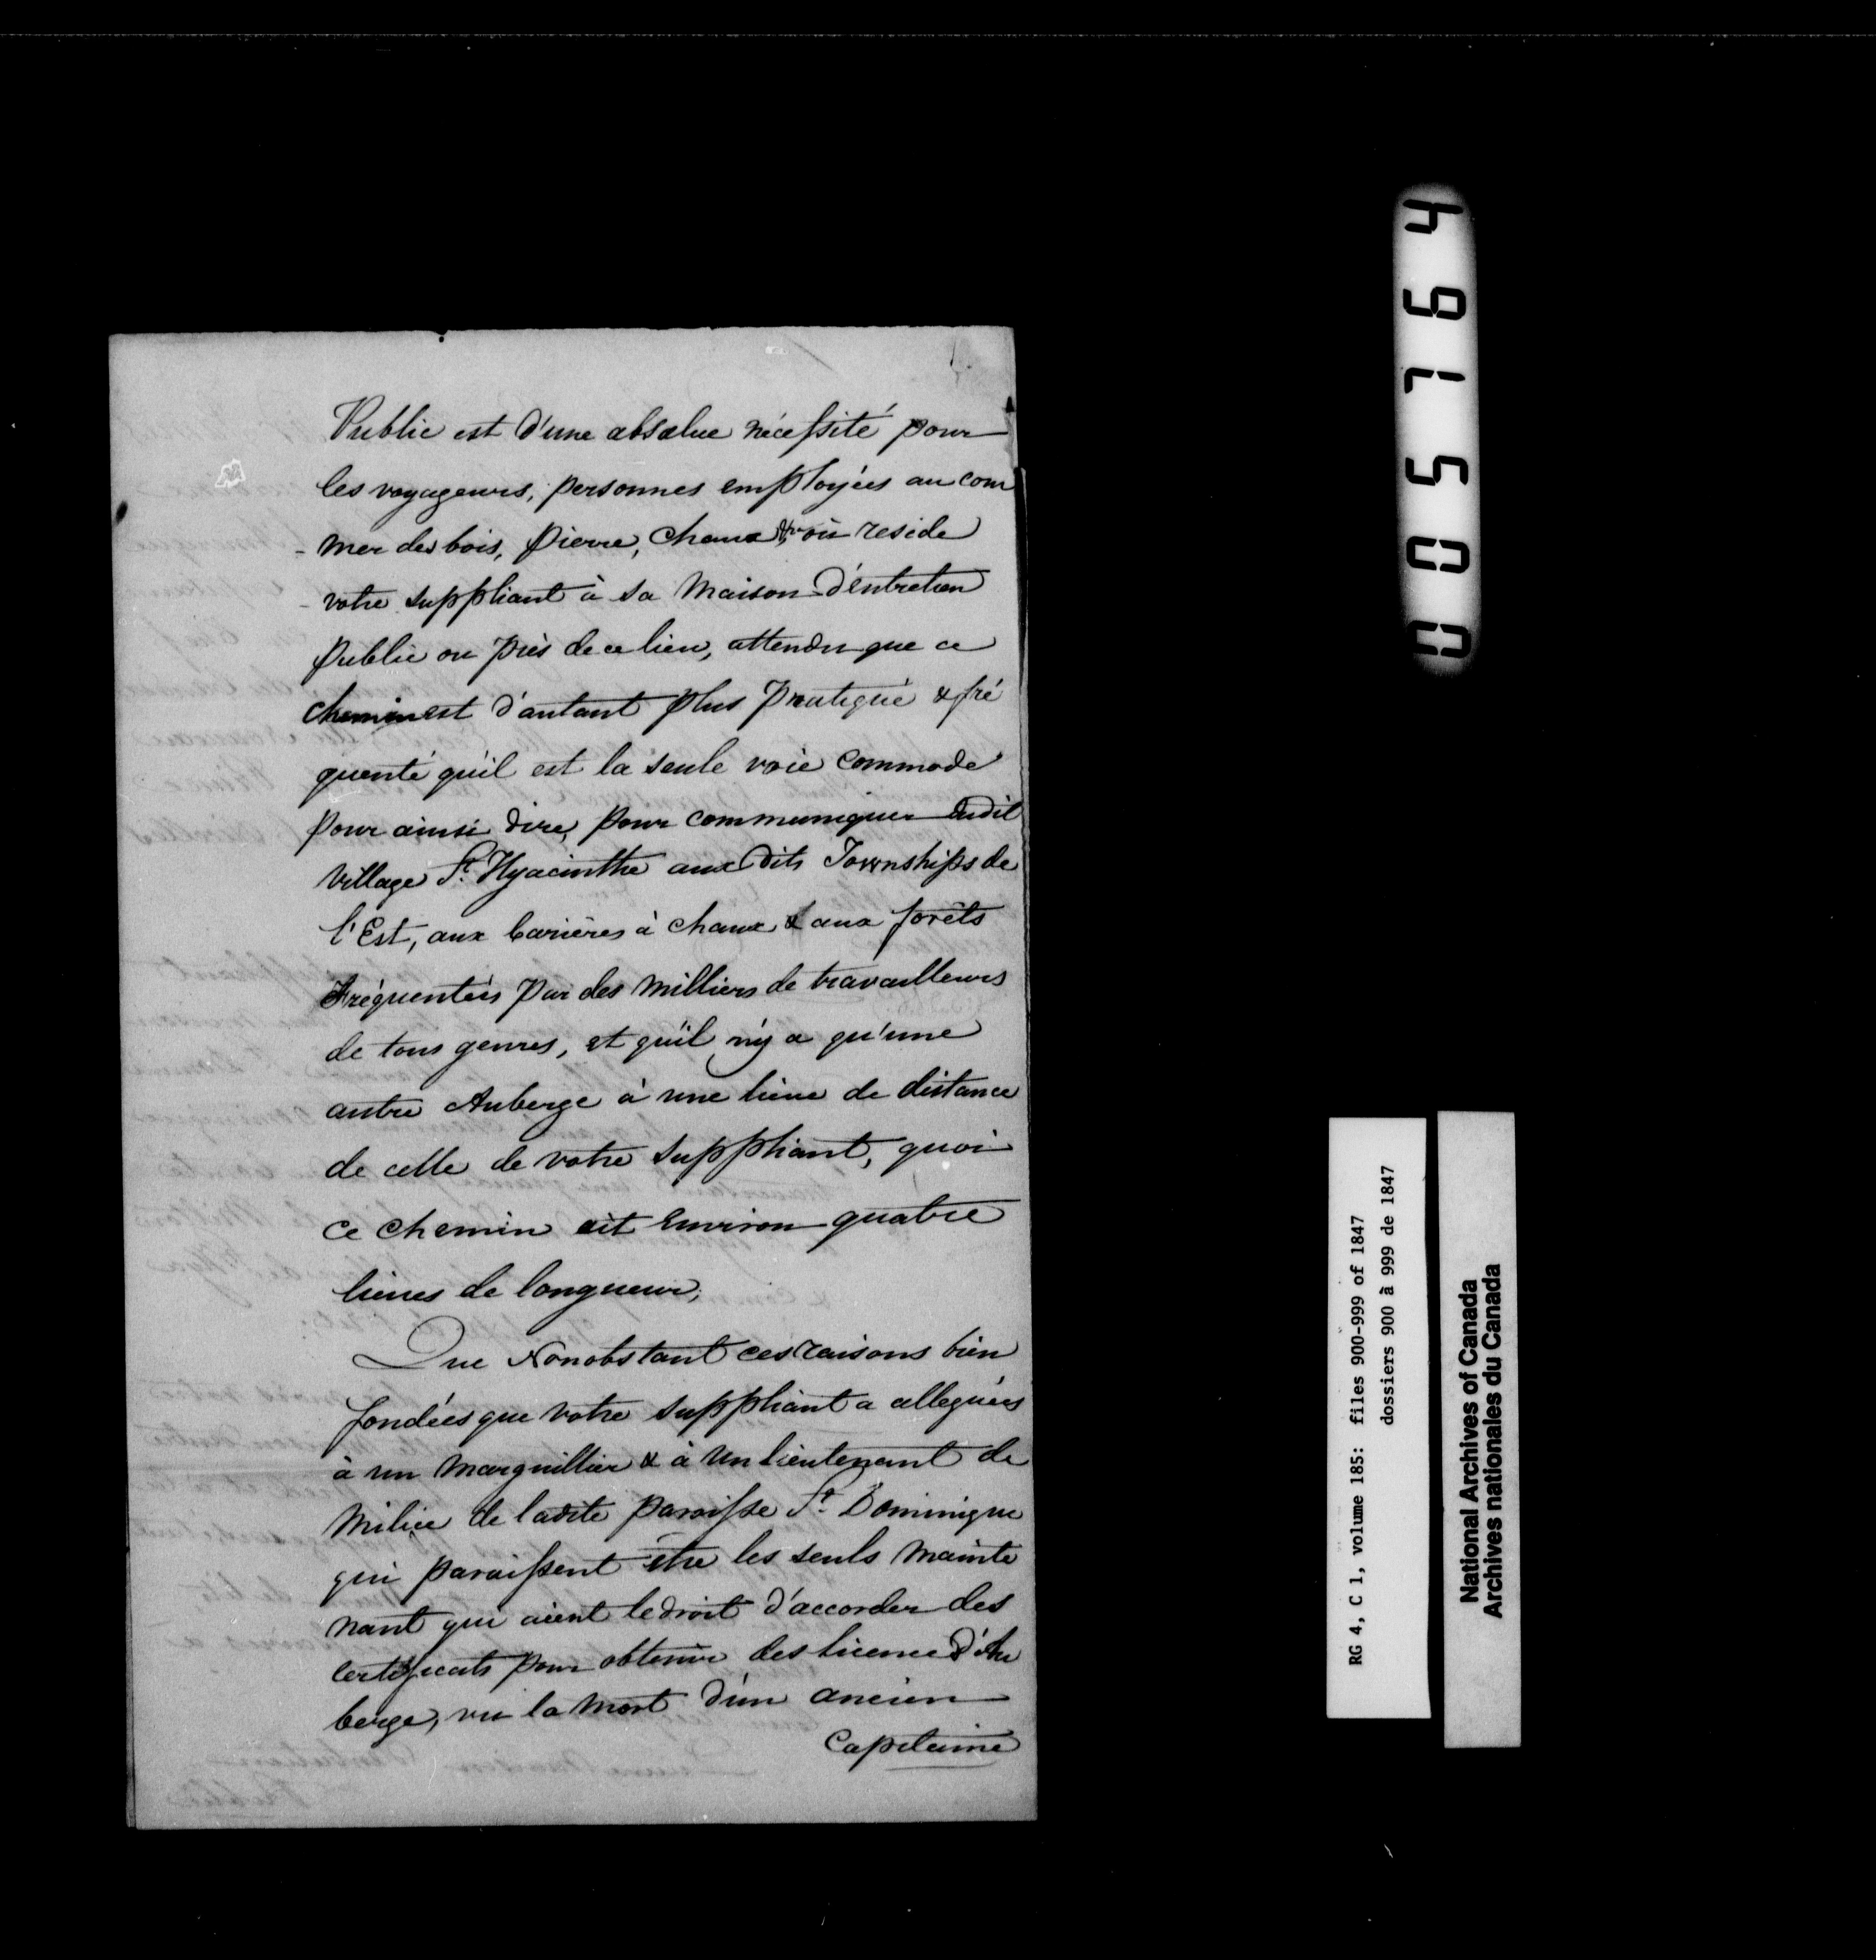 Public est d'une absolue nécessité pour
les voyageurs, personnes employées au com
- mer des bois, pierre, chaux &c. où reside
votre suppliant à sa Maison d'entretien
public ou près de ce lieu, attendu que ce
chemin est d'autant plus pratiqué & fré
quenté qu'il est la seule voie commode
pour ainsi dire, pour communiquer dudit
Village St. Hyacinthe aux dits Townships de
l'Est, aux carières à chaux & aux forêts
fréquentées par des milliers de travailleurs
de tous genres, et qu'il n'y a qu'une
autre Auberge à une lieue de distance
de celle de votre suppliant, quoi
ce chemin ait environ quatre
lieues de longueur,
Que Nonobstant ces raisons bien
fondées que votre suppliant a alleguées
à un Marguillier & à un lieutenant de
Milice de ladite paroisse St. Dominique
qui paraissent être les seuls mainte
nant qui aient le droit d'accorder des
certificats pour obtenir des licence d'Au
berge, vu la Mort d'un ancien
Capitaine
005764
RG 4, C 1, volume 185: files 900-999 of 1847
dossiers 900 à 999 de 1847
National Archives of Canada
Archives nationales du Canada